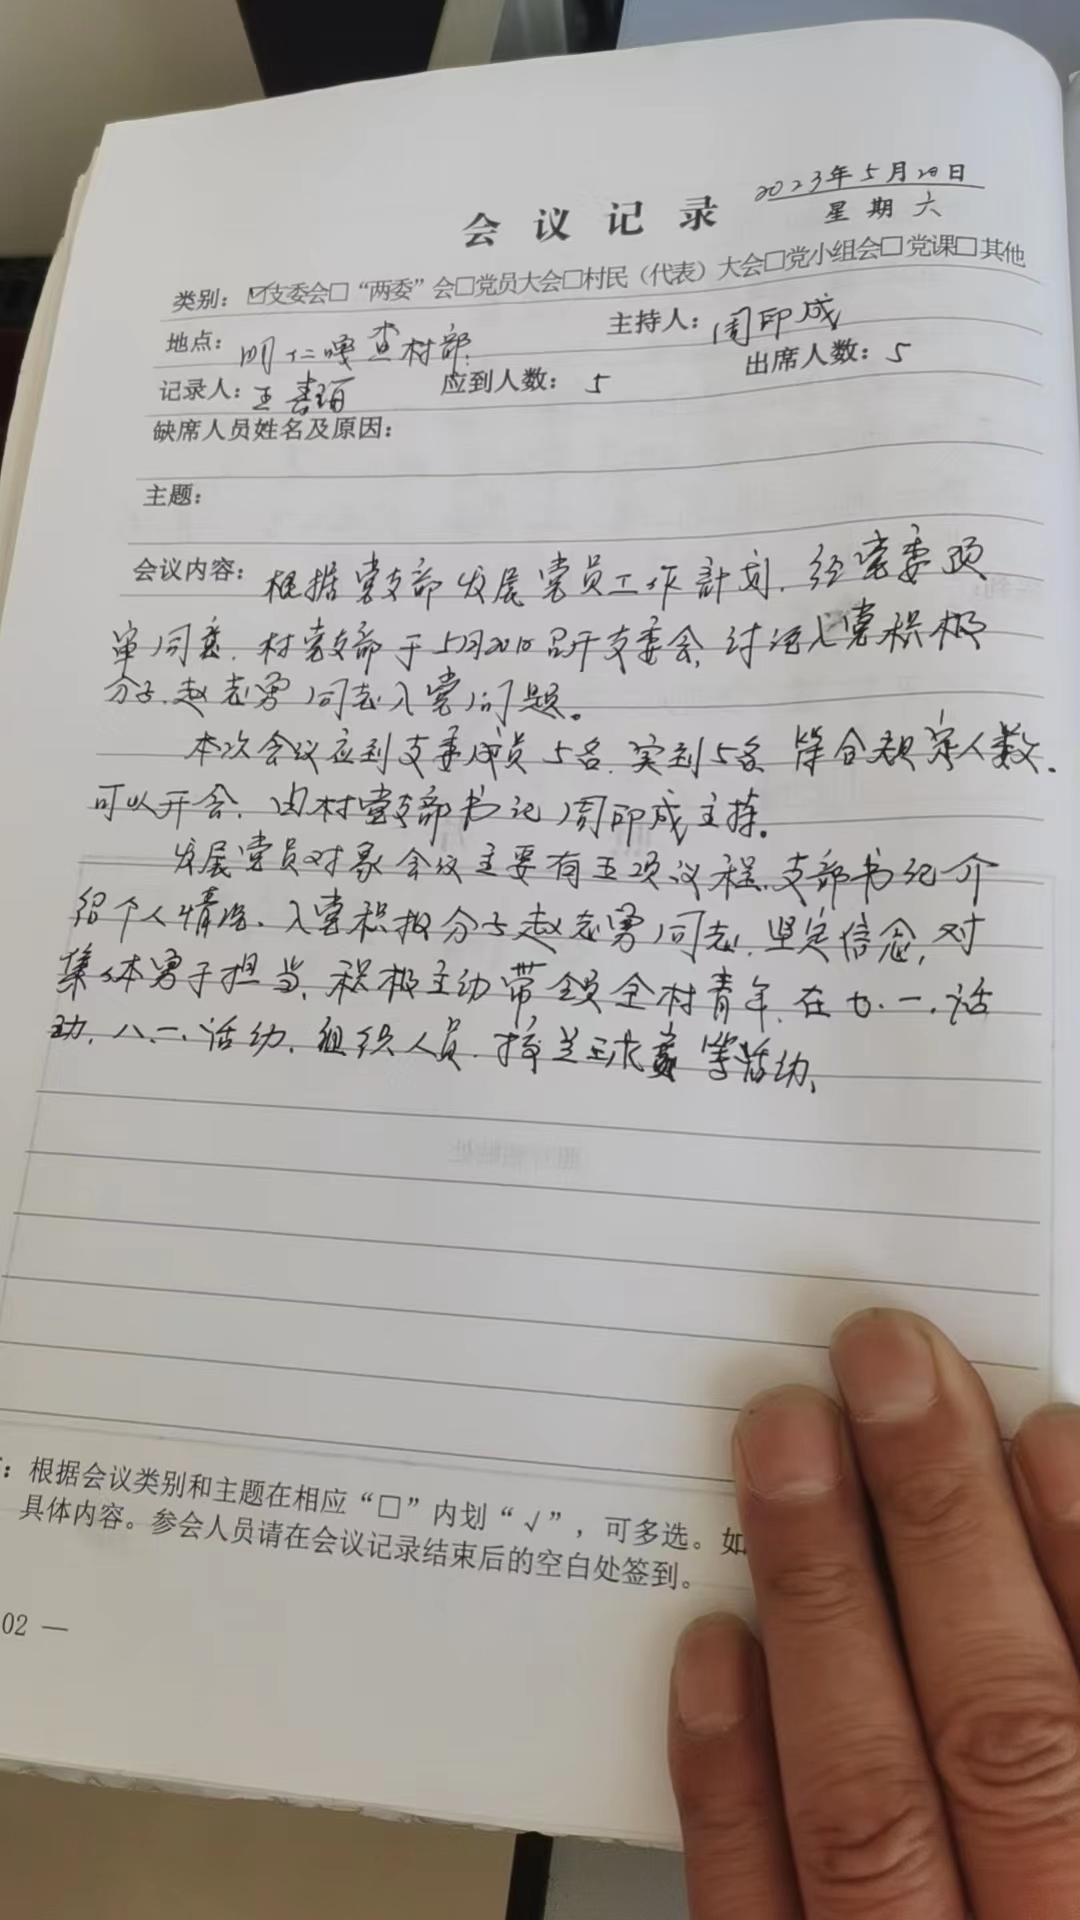 会议记录
2023年5月20日
星期六
类别：☑支委会□“两委”会□党员大会□村民（代表）大会□党小组会□党课□其他
地点：明仁嘎查村部
主持人：周印成
记录人：王
应到人数：5
出席人数：5
缺席人员姓名及原因：
主题：
会议内容：根据党支部发展党员工作計划，经党委预
审同意，村党支部于5月20日召开支委会，讨论入党积极
分子，赵志勇同志入党问题。
本次会议应到支委成员5名，实到5名 符合规定人数，
可以开会，由村党支部书记周印成主持。
发展党员对象会议主要有五项议程，支部书记介
绍个人情况，入党积极分子赵志勇同志，坚定信念，对
集体勇于担当，积极主动带全村青年，在七·一，活
动，八、一、活动，组织人员，球赛等活动，
：根据会议类别和主题在相应“□”内划“√”，可多选。如
具体内容。参会人员请在会议记录结束后的空白处签到。
02 —